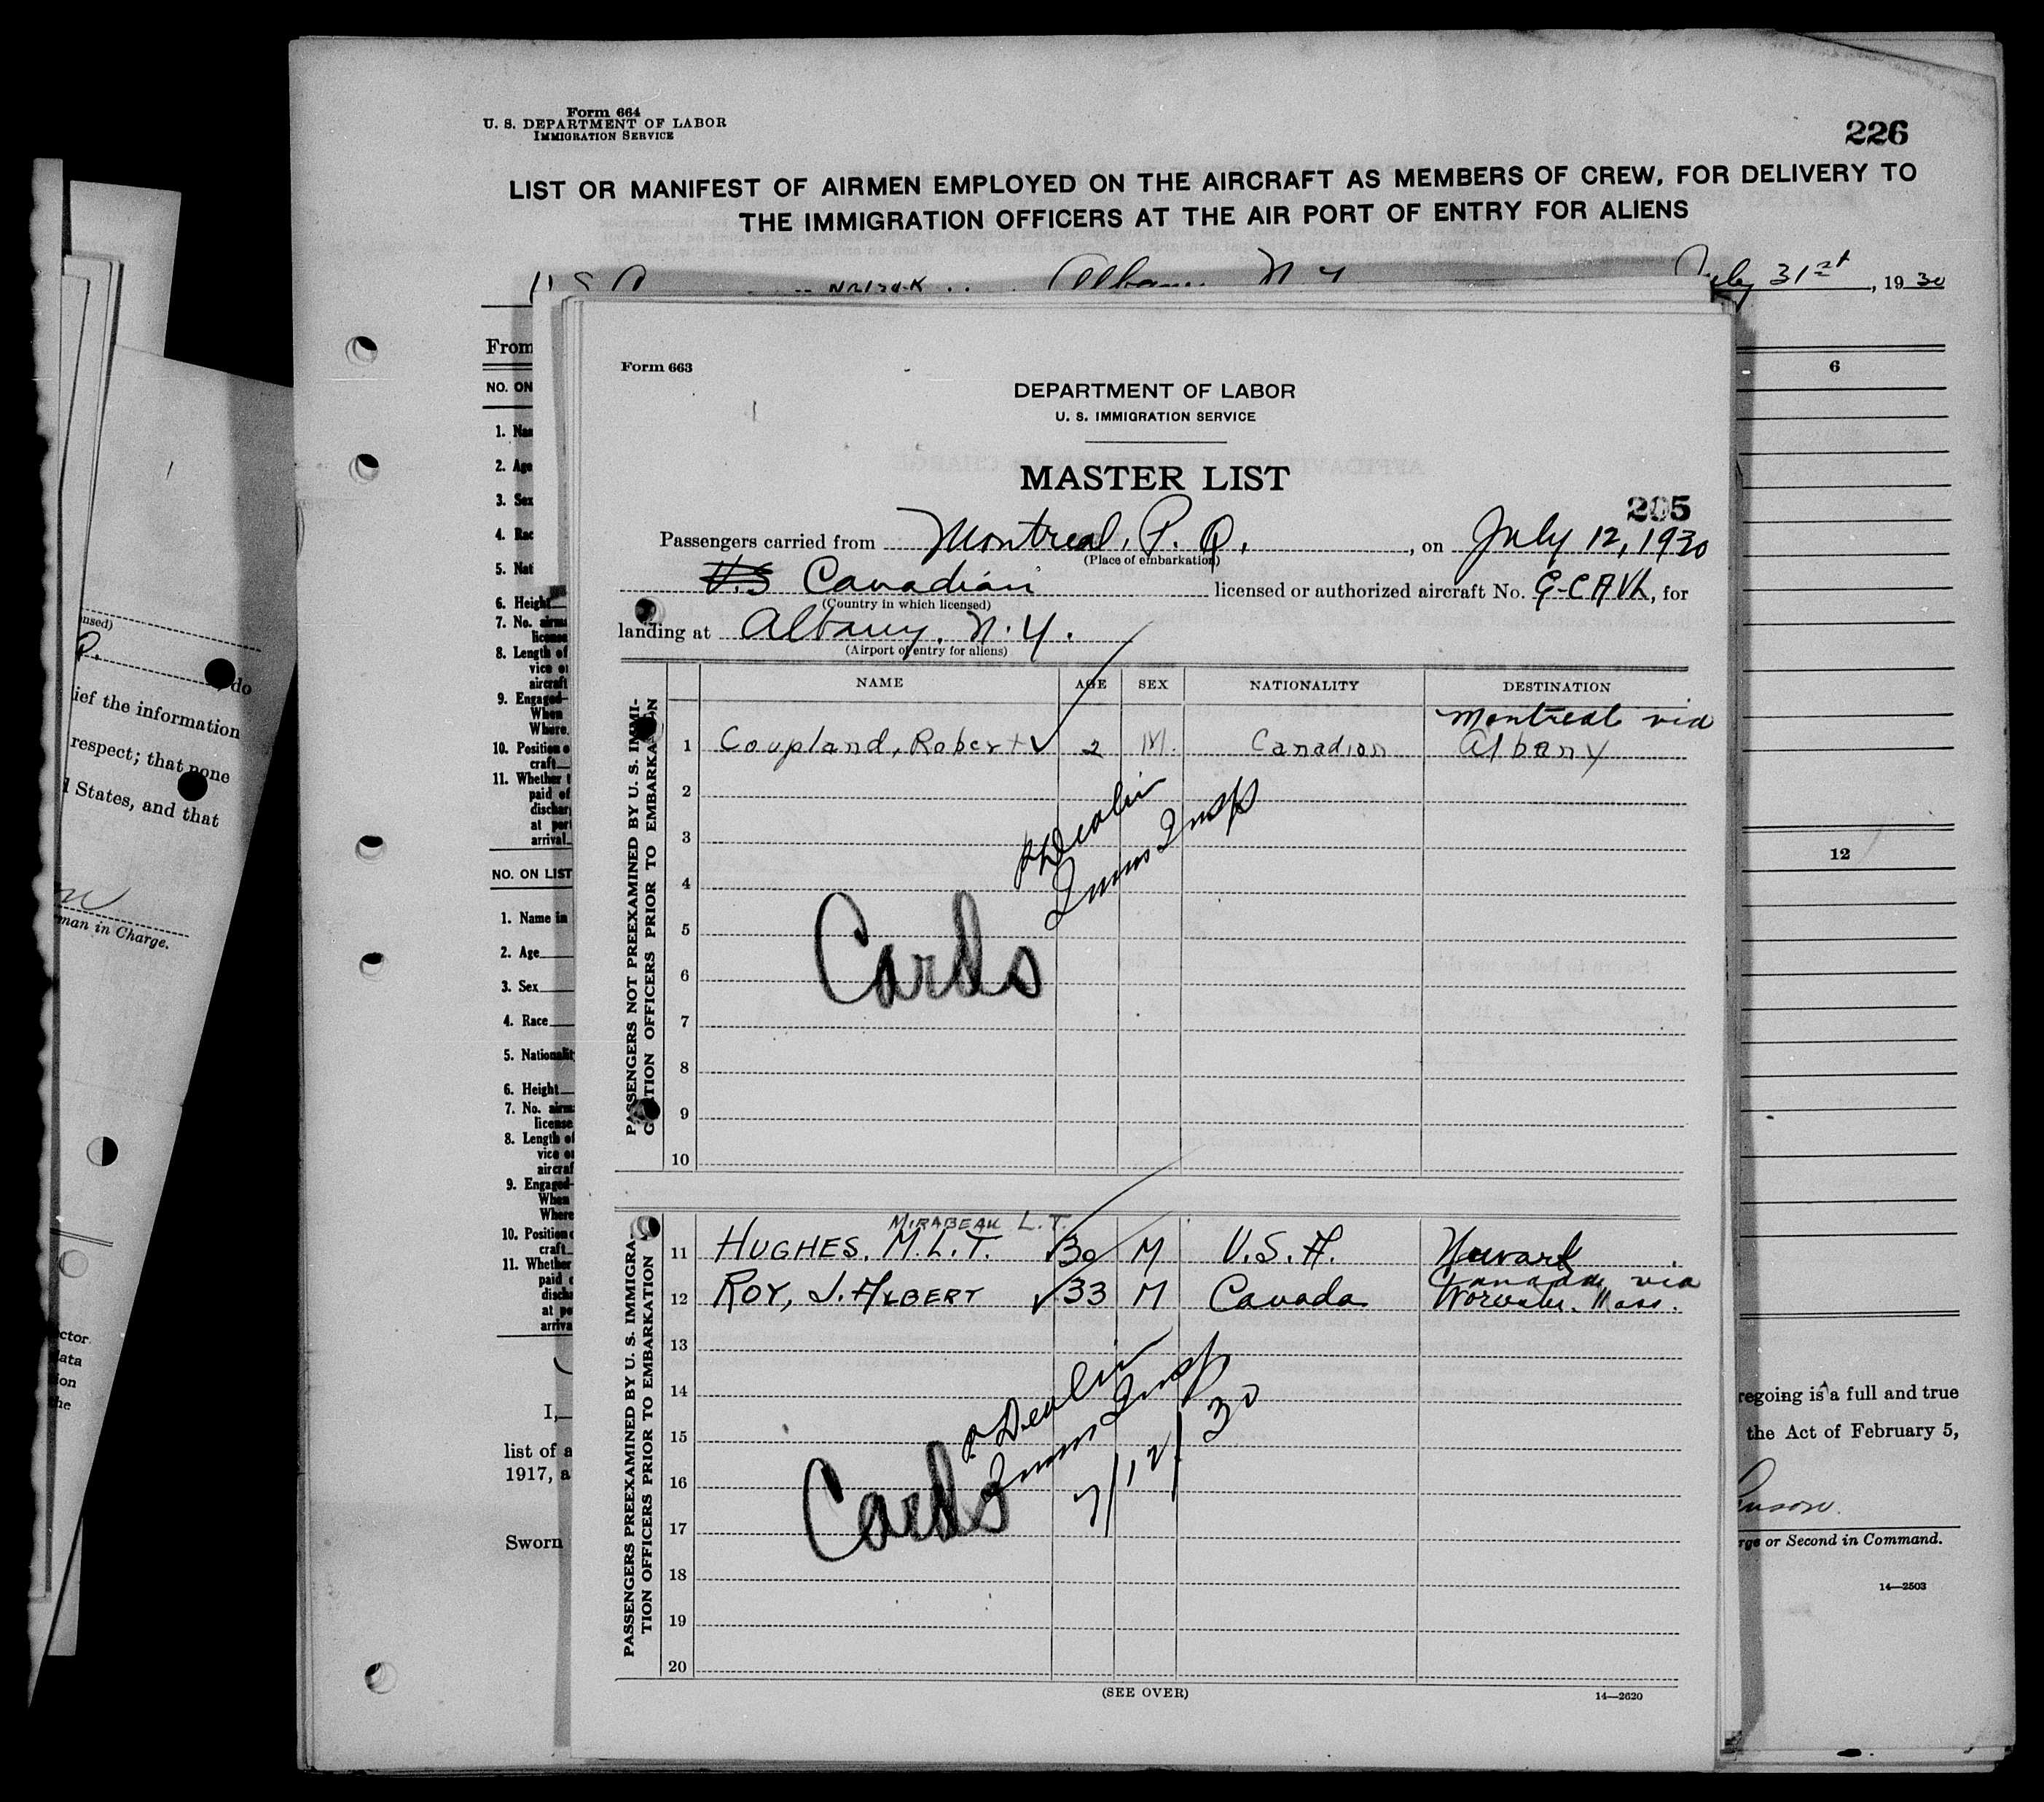 Form 664
U. S. DEPARTMENT OF LABOR
IMMIGRATION SERVICE
226
LIST OR MANIFEST OF AIRMEN EMPLOYED ON THE AIRCRAFT AS MEMBERS OF CREW, FOR DELIVERY TO
THE IMMIGRATION OFFICERS AT THE AIR PORT OF ENTRY FOR ALIENS
July 31st, 1930
From
NO. ON
6
1. Na
2. Age
3. Sex
4. Rac
5. Nati
6. Height
7. No. airm
license
8. Length of
vice o
aircraft
9. Engaged—
When
Where
10. Position o
craft
11. Whether
paid of
dischar
at port
arrival
NO. ON LIST
12
1. Name in
2. Age
3. Sex
4. Race
5. Nationalit
6. Height
7. No. airm
license
8. Length of
vice o
aircraf
9. Engaged—
When
Where
10. Position
craft
11. Whether
paid
discha
at po
arriva
I,
list of a
1917, a
Sworn
regoing is a full and true
the Act of February 5,
rge or Second in Command.
14—2503
Form 663
DEPARTMENT OF LABOR
U. S. IMMIGRATION SERVICE
MASTER LIST
205
Passengers carried from Montreal, P. Q., on July 12, 1930
(Place of embarkation)
U.S Canadian licensed or authorized aircraft No. G-CAVL, for
(Country in which licensed)
landing at Albany. N.Y.
(Airport of entry for aliens)
PASSENGERS NOT PREEXAMINED BY U. S. IMMI-
GRATION OFFICERS PRIOR TO EMBARKATION
NAME AGE SEX NATIONALITY DESTINATION
Montreal via
1 Coupland, Robert ✓ 2 M. Canadian Albany
2
3
4
5
6
7
8
9
10
Imms Insp
Cards
PASSENGERS PREEXAMINED BY U. S. IMMIGRA-
TION OFFICERS PRIOR TO EMBARKATION
MIRABEAU L.T.
11 HUGHES. M.L.T. ✓ 30 M U.S.A. Newark
Canada via
12 ROY, J. ALBERT ✓ 33 M Canada Worcester. Mass.
13
14
15
16
17
18
19
20
Imms Insp
7/12/30
Cards
(SEE OVER)
14—2620
used)
P.
do
ief the information
respect; that none
States, and that
man in Charge.
ctor
data
ion
the